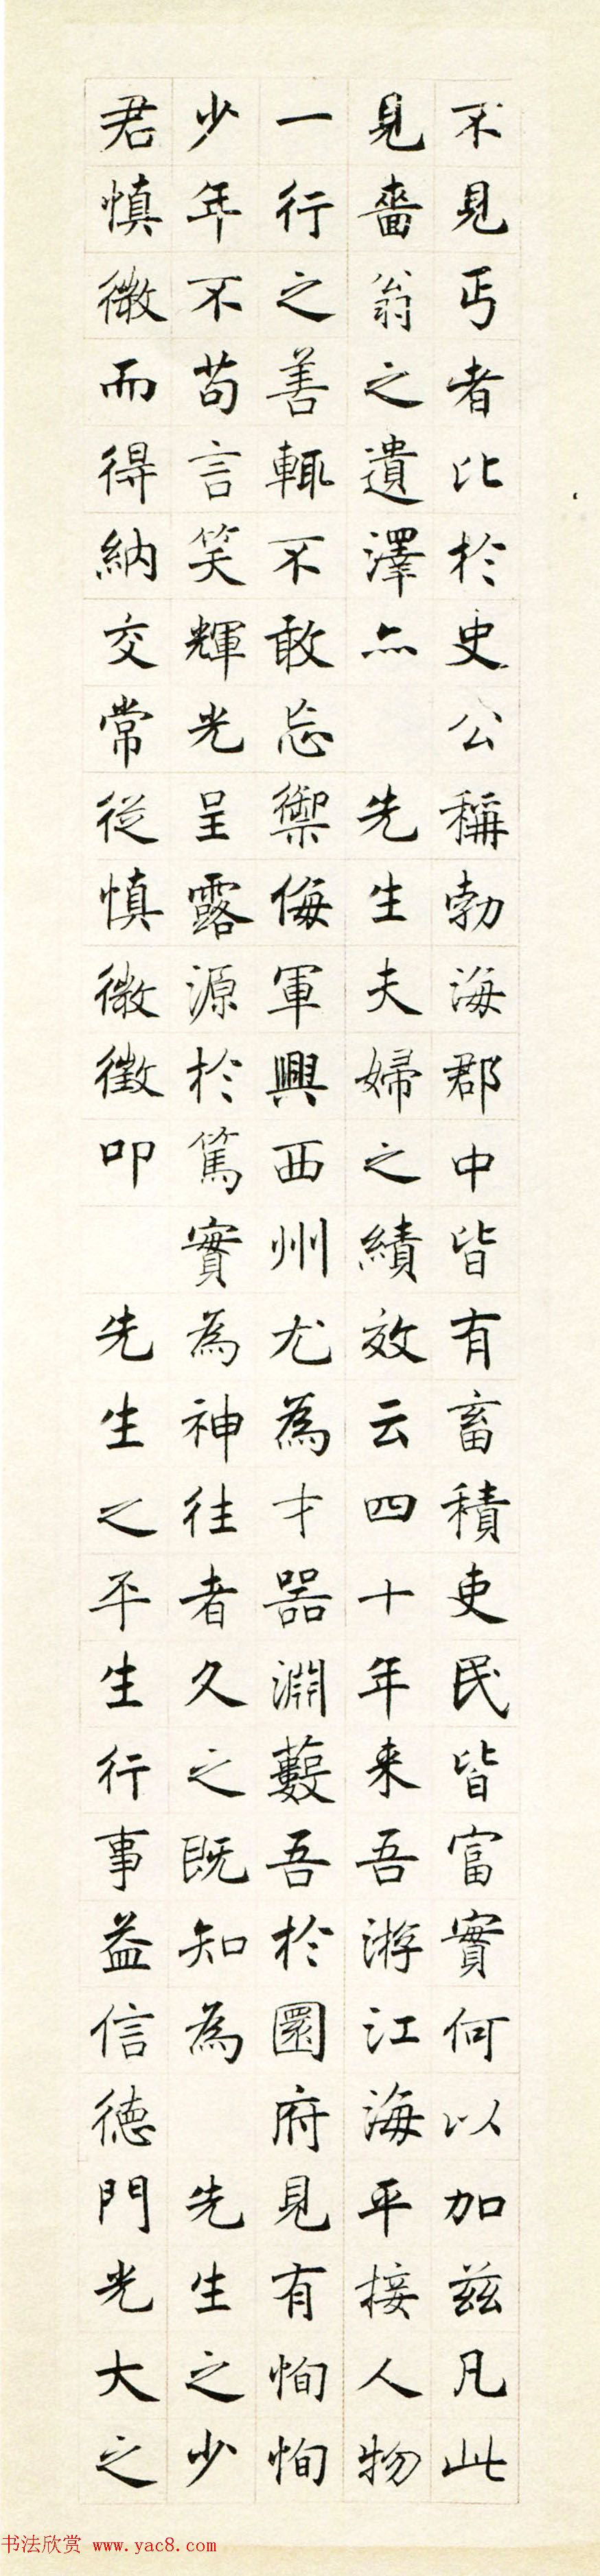 不見丐者比於史公稱勃海郡中皆有畜積吏民皆富實何以加兹凡此
見嗇翁之遺澤亦 先生夫婦之績效云四十年来吾游江海平接人物
一行之善輒不敢忘禦侮軍興西州尤為才器淵藪吾於圜府見有恂恂
少年不苟言笑輝光呈露源於篤實為神往者久之既知為 先生之少
君慎微而得納交常從慎微徵叩 先生之平生行事益信德門光大之
书法欣赏 www.yac8.com